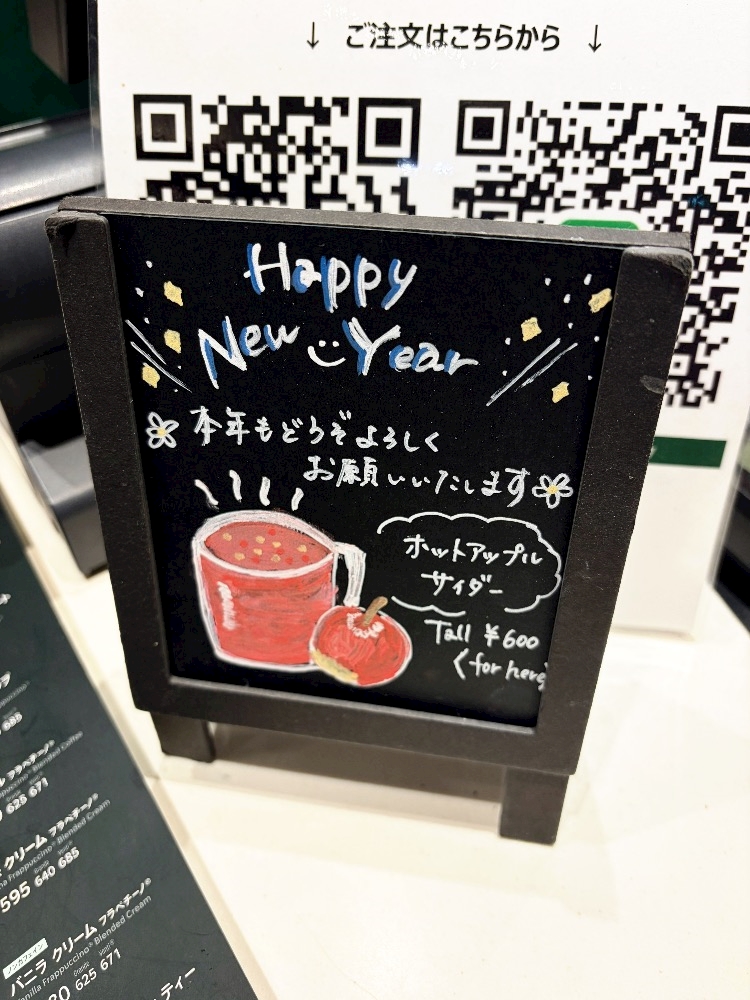 ↓ ご注文はこちらから ↓
Happy
New Year
本年もどうぞよろしく
お願いいたします
ホットアップル
サイダー
Tall ¥600
(for here)
685
フラペチーノ®
Blended Coffee
625 671
クリーム フラペチーノ®
Frappuccino® Blended Cream
595 640 685
ノンカフェイン
バニラ クリーム フラペチーノ®
Vanilla Frappuccino® Blended Cream
625 671
ティー